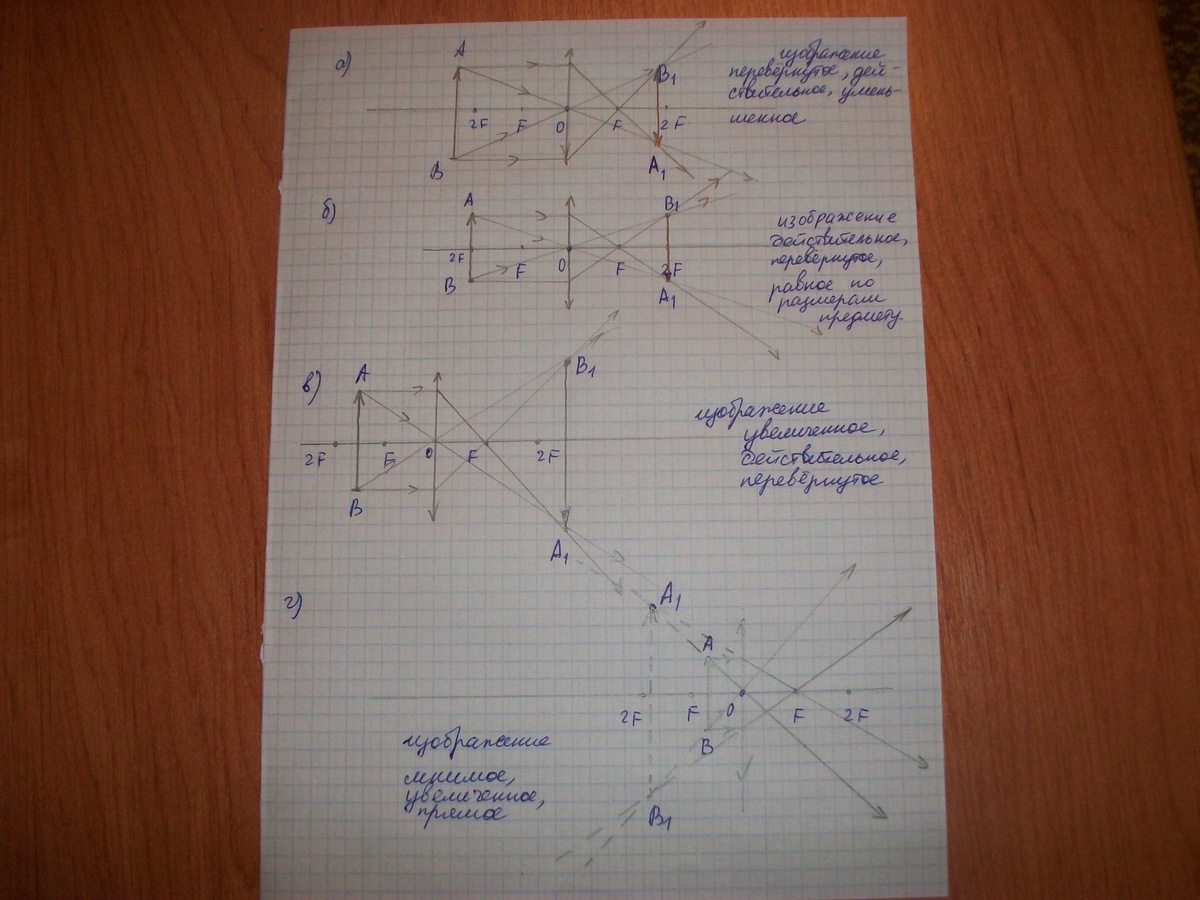 а)
A
B
2F
F
O
F
2F
B1
A1
изображение
перевёрнутое, дей-
ствительное, умень-
шенное
б)
A
B
2F
F
O
F
2F
B1
A1
изображение
действительное,
перевёрнутое,
равное по
размерам
предмету.
в)
A
B
2F
F
O
F
2F
B1
A1
изображение
увеличенное,
действительное,
перевёрнутое
г)
A1
A
2F
F
O
F
2F
B
B1
изображение
мнимое,
увеличенное,
прямое